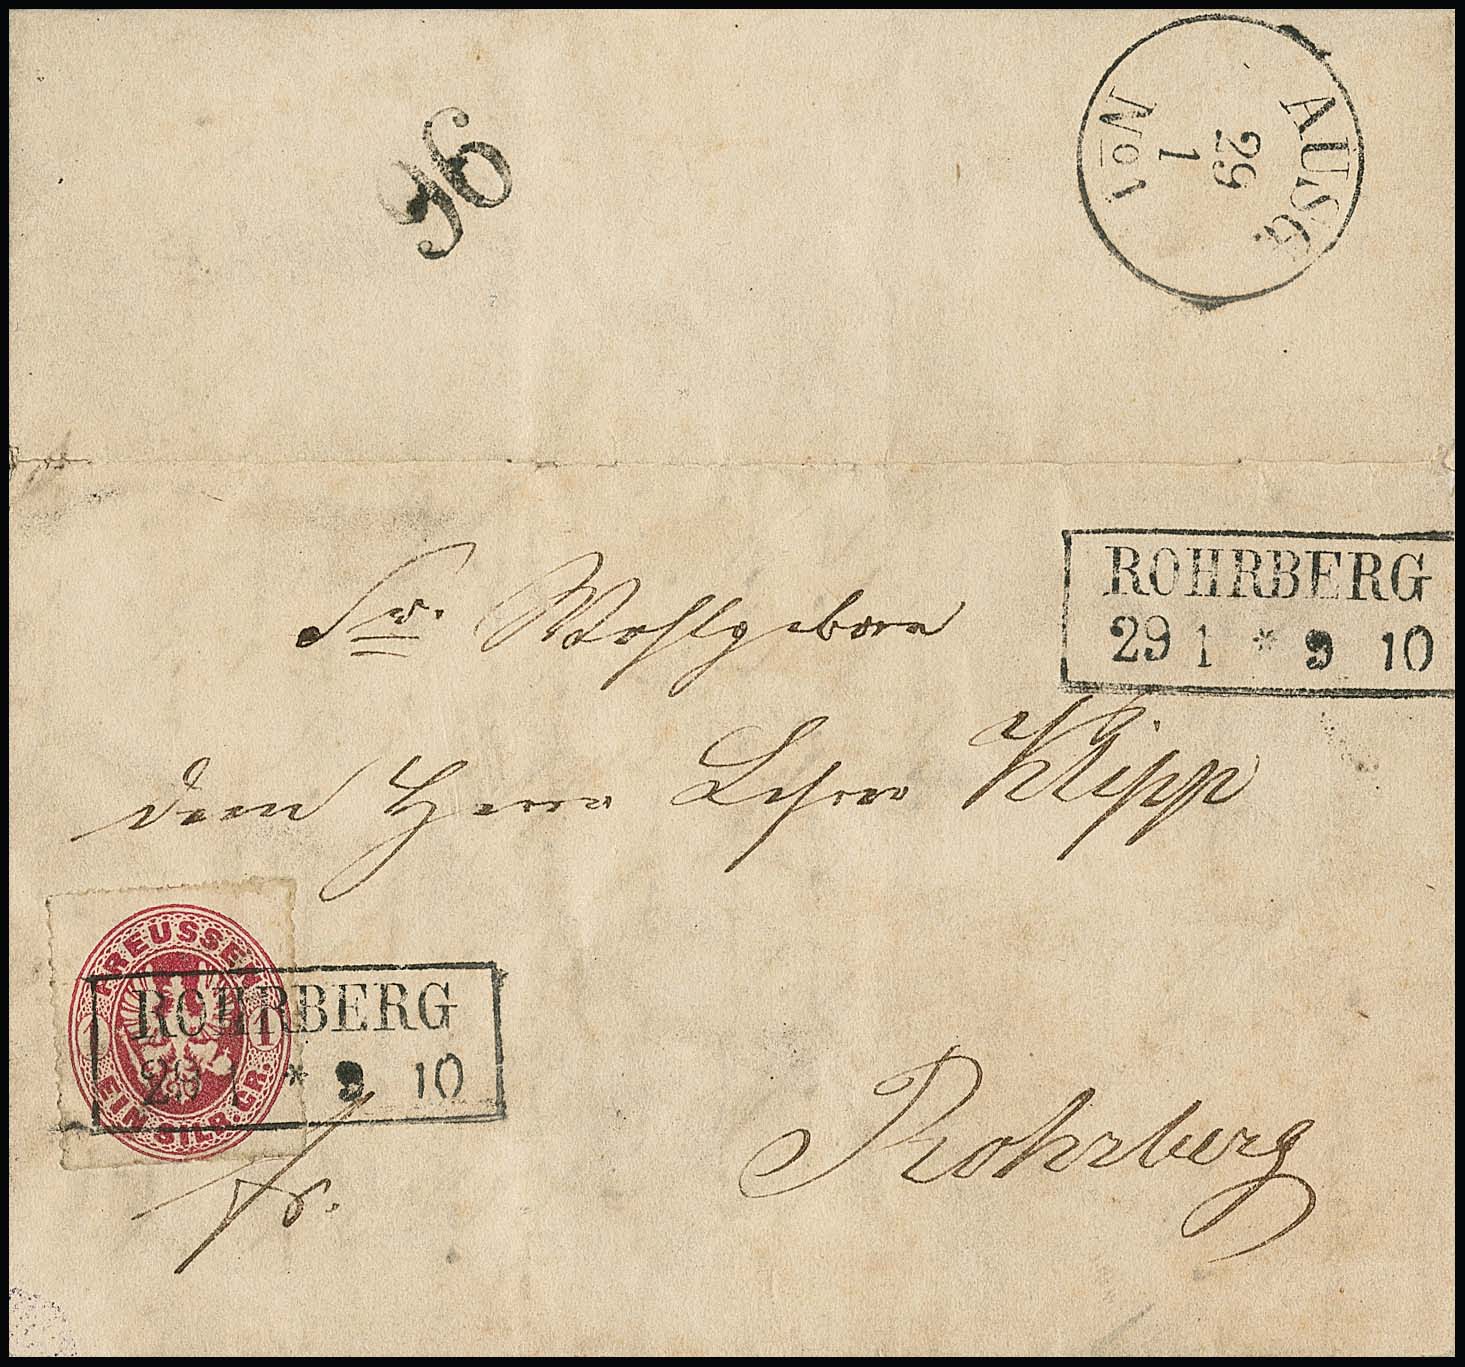 96
AUSG.
29
1
No 1
ROHRBERG
29 1 * 9 10
Sr. Wohlgeboren
dem Herrn Lehrer Klipp
PREUSSEN
1 1
EIN SILB. GR.
ROHRBERG
29 1 * 9 10
Rohrberg
fr.